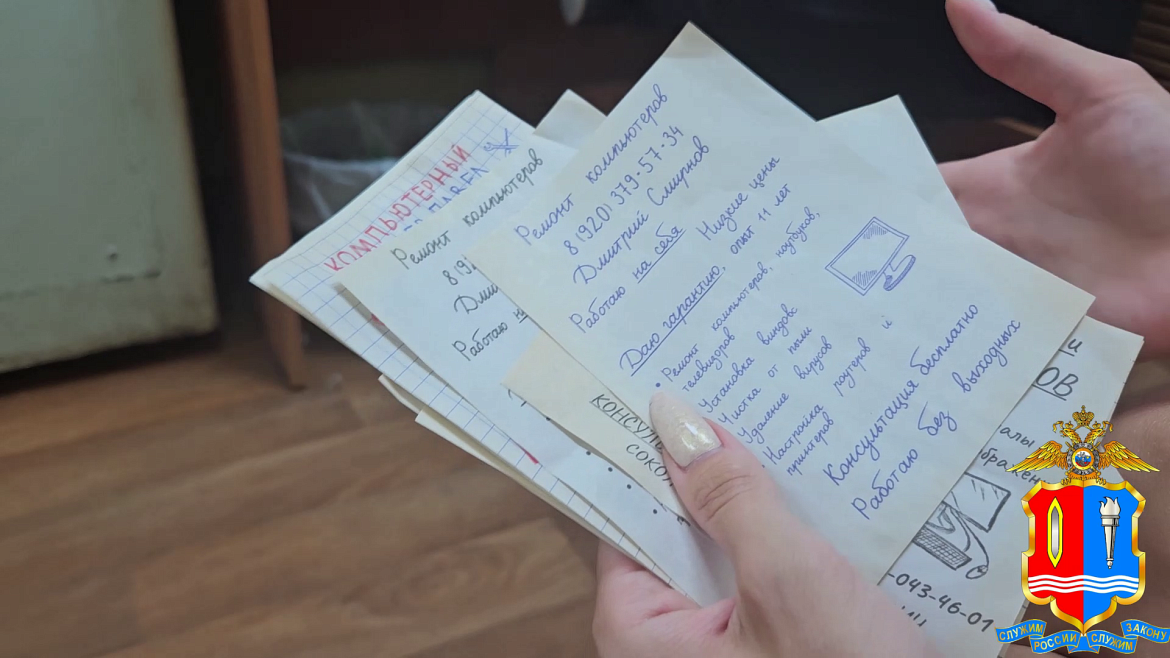 Ремонт компьютеров
8(920)379-57-34
Дмитрий Смирнов
Работаю на себя
Низкие цены
Даю гарантию, опыт 11 лет
• Ремонт компьютеров, ноутбуков,
телевизоров
Установка виндов
Чистка от пыли
Удаление вирусов
Настройка роутеров и
принтеров
Консультация бесплатно
Работаю без выходных
КОМПЬЮТЕРНЫЙ
Ремонт компьютеров
8(92
Дми
Работаю н
КОНСУЛЬ
СОКОЛ
ОВ
алы
бражен
-043-46-01
СЛУЖИМ РОССИИ СЛУЖИМ ЗАКОНУ